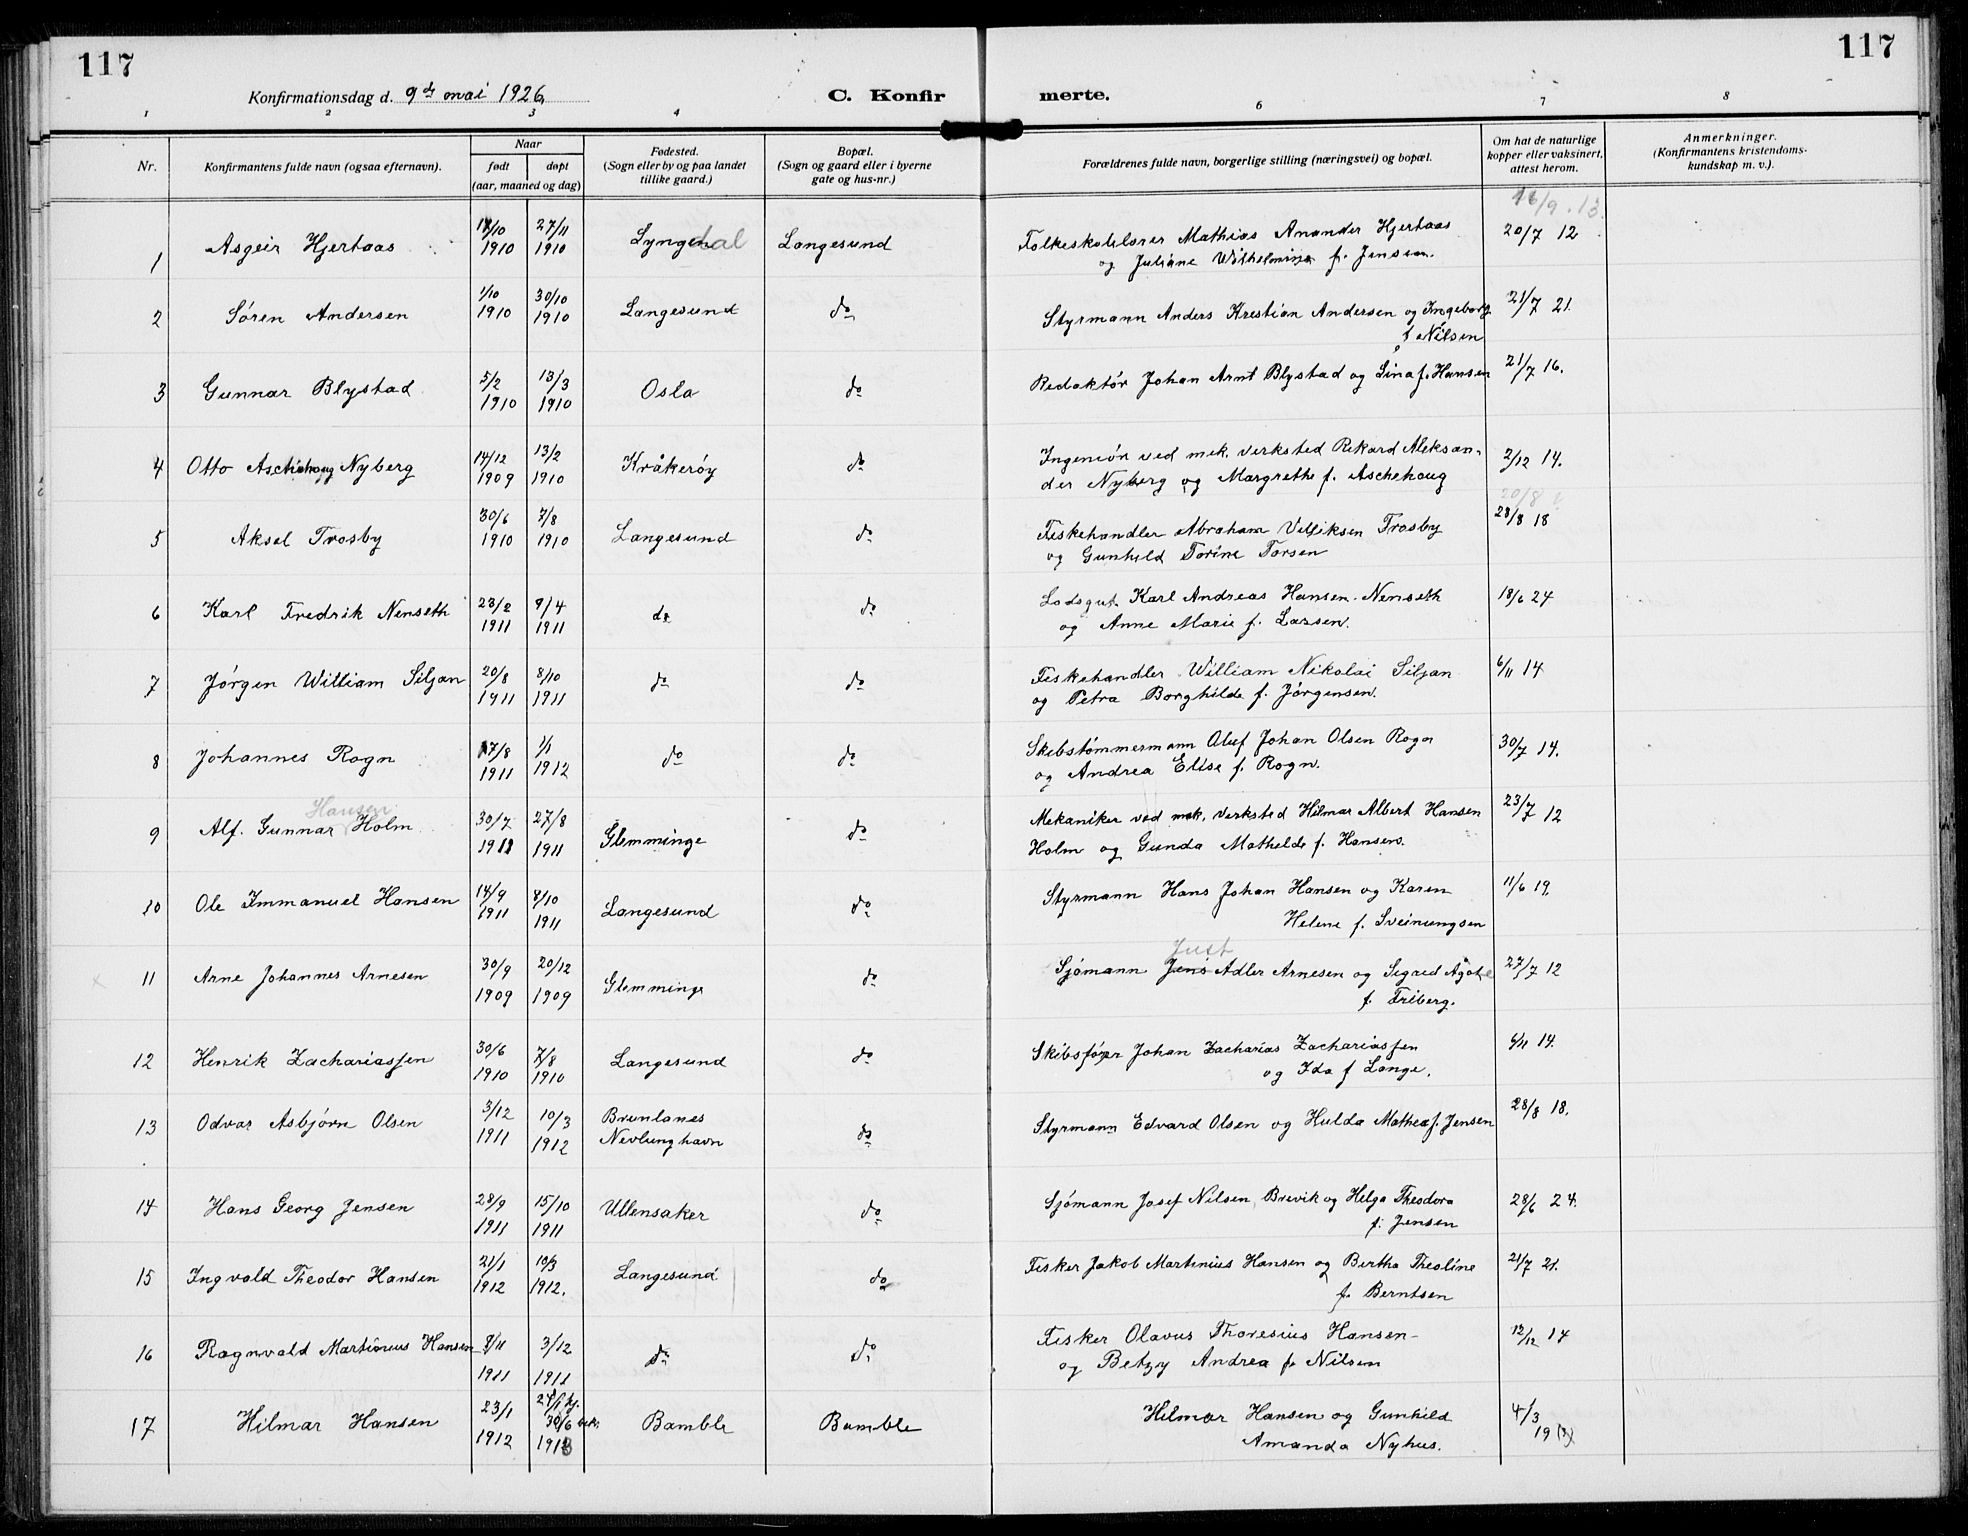 117
117
Konfirmationsdag d. 9de mai 1926
C. Konfir
merte.
1 2 3 4 6 7 8
Nr.
Konfirmantens fulde navn (ogsaa efternavn).
Naar
født døpt
(aar, maaned og dag)
Fødested.
(Sogn eller by og paa landet
tillike gaard.)
Bopæl.
(Sogn og gaard eller i byerne
gate og hus-nr.)
Forældrenes fulde navn, borgerlige stilling (næringsvei) og bopæl.
Om hat de naturlige
kopper eller vaksinert,
attest herom.
Anmerkninger.
(Konfirmantens kristendoms-
kundskap m. v.).
16/9 . 13.
1 Asgeir Hjertaas 27/11 Lyngdal Langesund Folkeskolelærer Mathias Anander Hjertaas 20/7 12
1910 1910 og Juliane Wilhelmine f. Jensen.
2 Søren Andersen 1/10 30/10 Langesund do Styrmann Anders Kristian Andersen og Ingeborg 21/7 21.
1910 1910 f Nilsen
3 Gunnar Blystad 5/2 13/3 Oslo do Redaktør Johan Arnt Blystad og Lina f. Hansen 21/7 16.
1910 1910
4 Otto Aschehoug Nyberg 14/12 13/2 Kråkerøy do Ingeniør ved mek. verksted Rikard Aleksan- 2/12 14.
1909 1910 der Nyberg og Margrethe f. Aschehoug
20/8
5 Aksel Trosby 30/6 7/8 Langesund do Fiskehandler Abraham Trosby 28/8 18
1910 1910 og Gunhild Torine Torsen
6 Karl Fredrik Nenseth 23/2 9/4 do do Lodsgut Karl Andreas Hansen-Nenseth 18/6 24
1911 1911 og Anne Marie f. Larsen.
7 Jørgen William Siljan 20/8 8/10 do do Fiskehandler William Nikolai Siljan 6/11 14
1911 1911 og Petra Borghilde f. Jørgensen.
8 Johannes Rogn 17/8 1/1 do do Skibstømmermann Oluf Johan Olsen Rogn 30/7 14.
1911 1912 og Andrea Elise f. Rogn.
Hansen
9 Alf. Gunnar Holm 30/7 27/8 Glemminge do Mekaniker ved mek. verksted Hilmar Albert Hansen 23/7 12
1911 1911 Holm og Gunda Mathilde f. Hansen.
10 Ole Immanuel Hansen 14/9 8/10 Langesund do Styrmann Hans Johan Hansen og Karen 11/6 19.
1911 1911 Helene f. Sveinungsen
Just
x 11 Arne Johannes Arnesen 30/9 20/12 Glemminge do Sjømann Jens Adler Arnesen og Sigrid Agote 27/7 12
1909 1909 f. Friberg.
12 Henrik Zachariassen 30/6 7/8 Langesund do Skibsfører Johan Zacharias Zachariassen 6/11 14.
1910 1910 og Ida f Lange.
13 Odvar Asbjørn Olsen 3/12 10/3 Brunlanes do Styrmann Edvard Olsen og Hulda Mathea f. Jensen 28/8 18.
1911 1912 Nevlunghavn
14 Hans Georg Jensen 28/9 15/10 Ullensaker do Sjømann Josef Nilsen, Brevik og Helga Theodora 28/6 24.
1911 1911 f. Jensen
15 Ingvald Theodor Hansen 21/1 10/3 Langesund do Fisker Jakob Martinius Hansen og Bertha Theoline 21/7 21.
1912 1912. f. Berntsen
16 Ragnvald Martinius Hansen 9/11 3/12 do do Fisker Olavus Thoresius Hansen- 12/12 14
1911 1911 og Betzy Andrea f. Nilsen
17 Hilmar Hansen 23/1 24/1 hj. Bamble Bamble Hilmar Hansen og Gunhild 4/3
30/6 bek.
1912 1913 Amanda Nyhus. 19 (?)